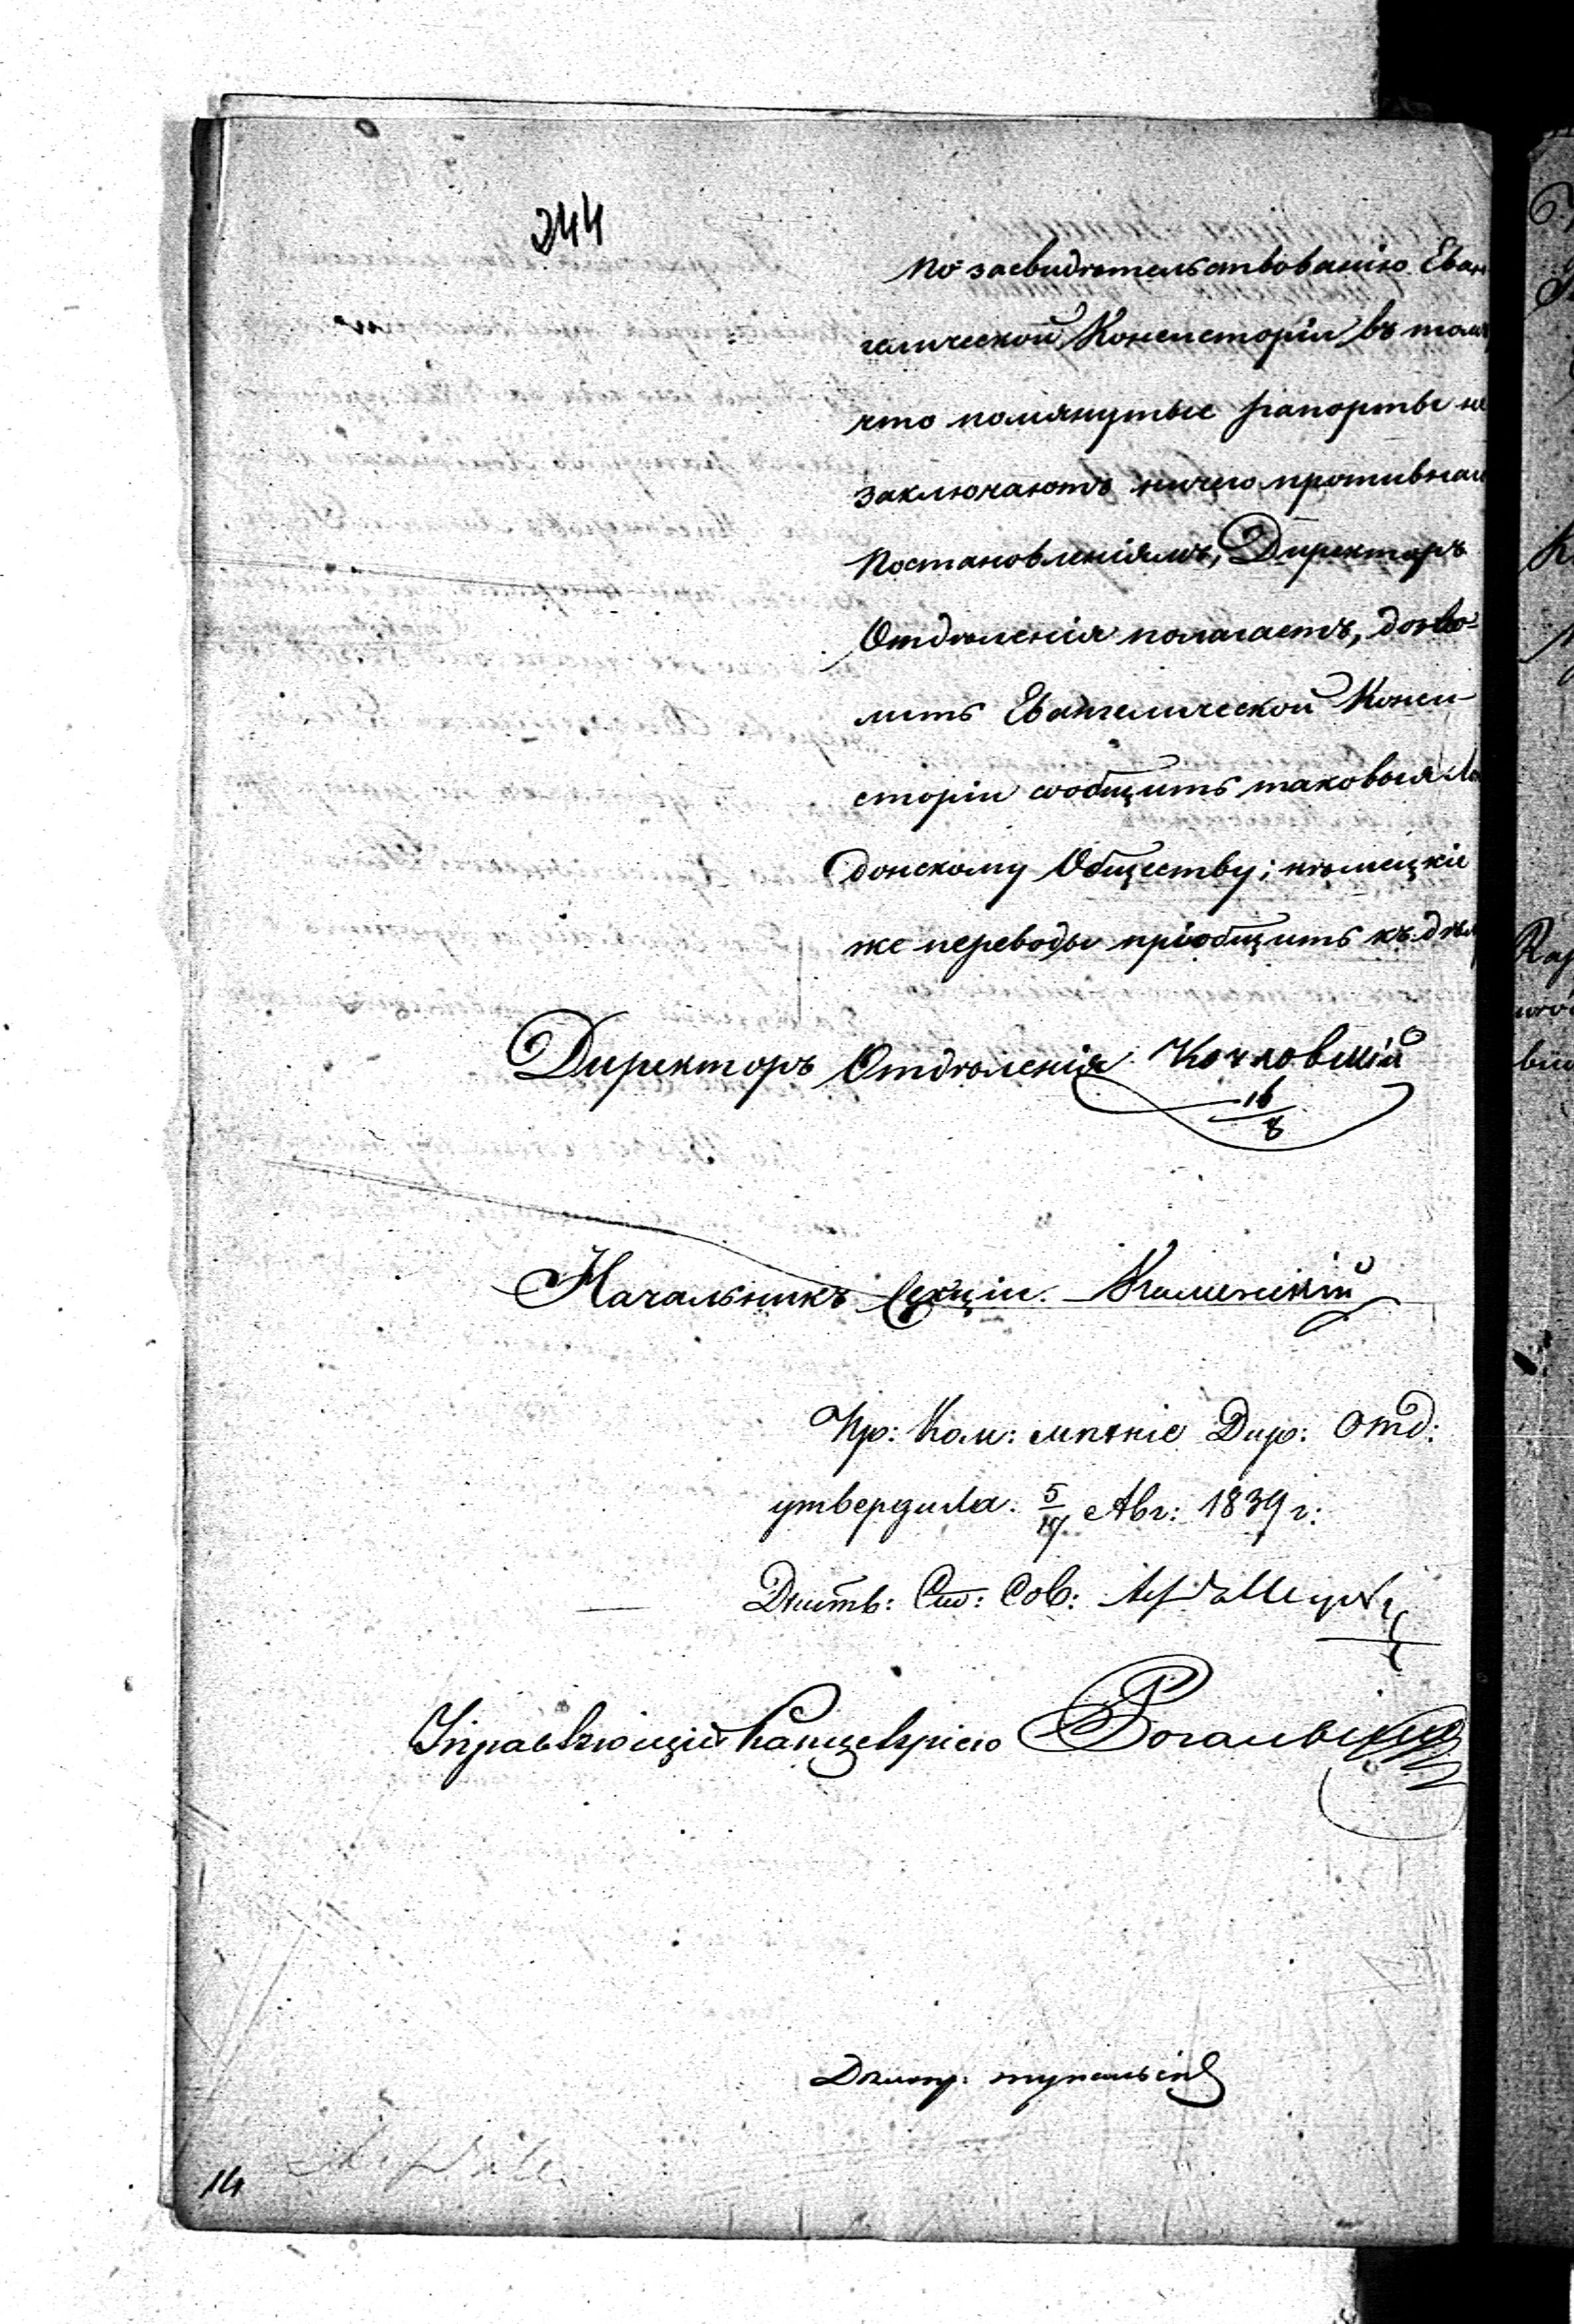 244
По засвидѣтельствованію Еван
гелической Консисторіи въ томъ
что помянутые рапорты не
заключаютъ ничего противнаго
Постановленіямъ, Директоръ
Отдѣленія полагаетъ, дозво-
лить Евангелической Конси-
сторіи сообщить таковыя Ло
донскому Обществу; нѣмецкіе
же переводы пріобщить къ дѣлу
Директоръ Отдѣленія
16/8
Начальникъ Секціи. Каменскій
Пр: Ком: мнѣніе Дир: Отд:
утвердила. 5/17 Авг: 1839 г:
Дѣйств: Ст: Сов:
Управляющій Канцеляріею
14